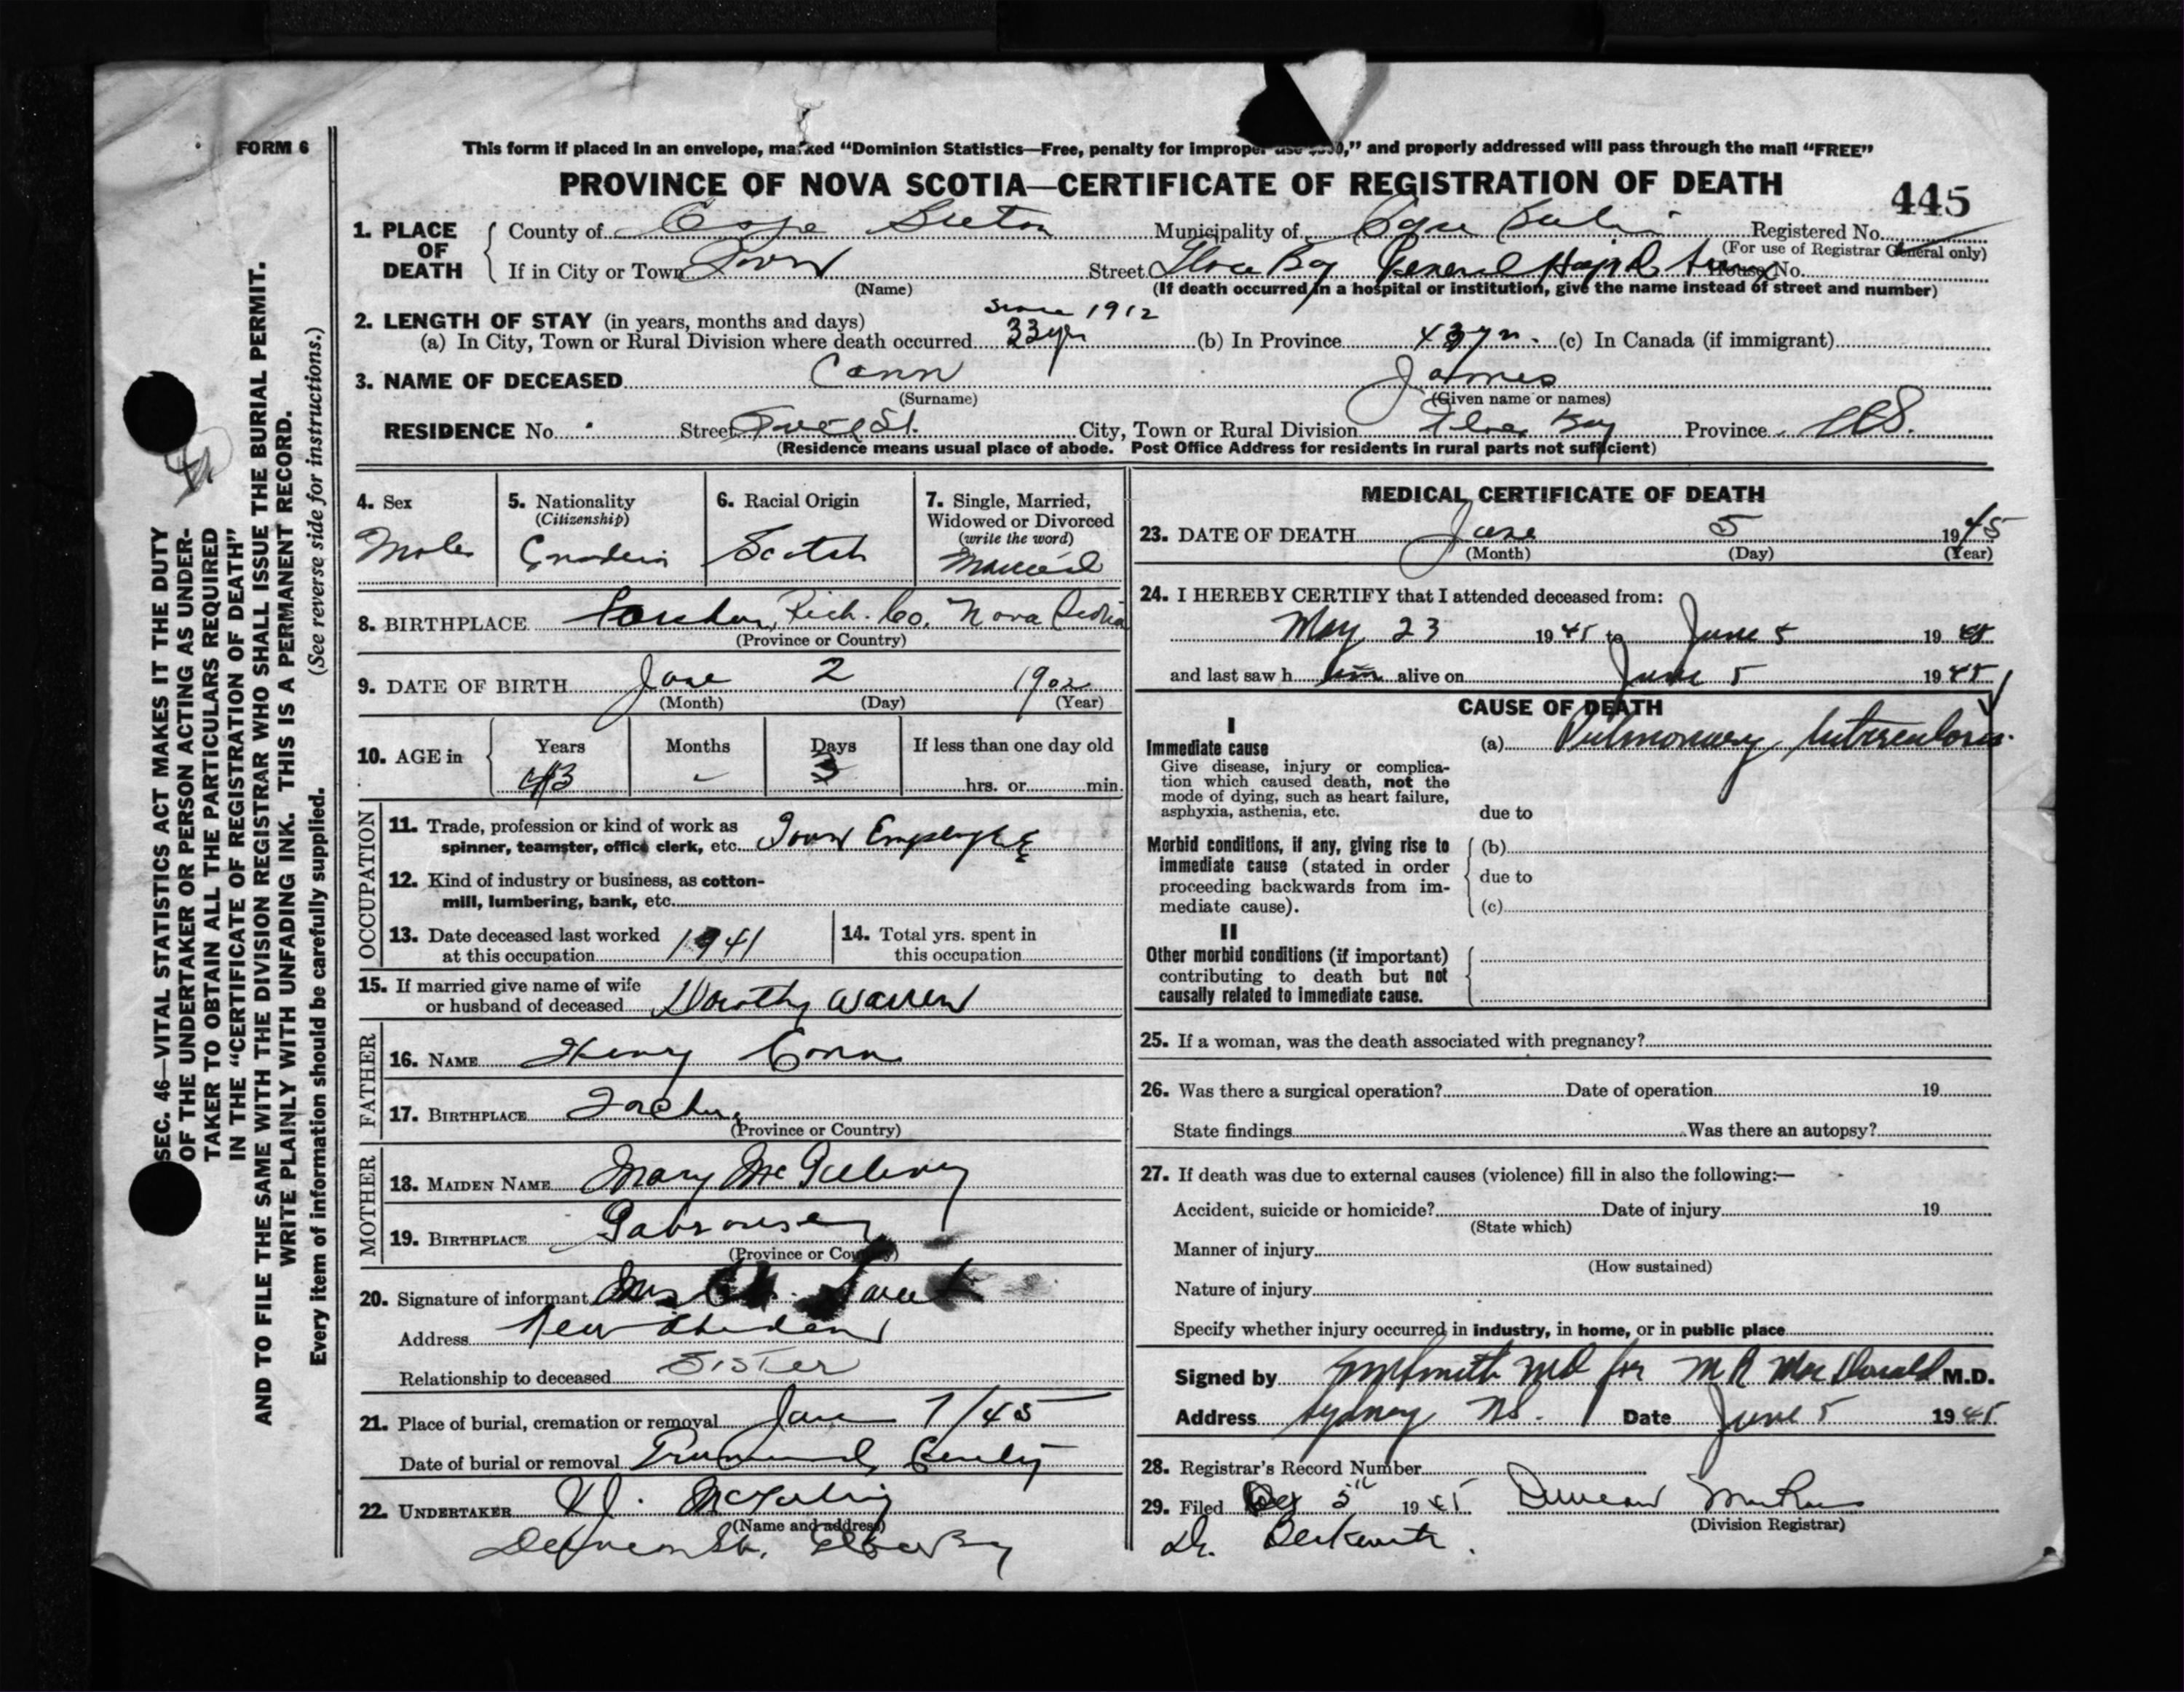 FORM 6
This form if placed in an envelope, marked “Dominion Statistics—Free, penalty for improper use $300,” and properly addressed will pass through the mail “FREE”
PROVINCE OF NOVA SCOTIA—CERTIFICATE OF REGISTRATION OF DEATH
445
1. PLACE OF DEATH
County of Cape Breton Municipality of Cape Breton Registered No.
(For use of Registrar General only)
If in City or Town Town Street Glace Bay General Hospital House No.
(Name) (If death occurred in a hospital or institution, give the name instead of street and number)
since 1912
2. LENGTH OF STAY (in years, months and days)
(a) In City, Town or Rural Division where death occurred 33 yrs (b) In Province 43 yrs. (c) In Canada (if immigrant)
3. NAME OF DECEASED Cann James
(Surname) (Given name or names)
RESIDENCE No. Street St. City, Town or Rural Division Glace Bay Province N.S.
(Residence means usual place of abode. Post Office Address for residents in rural parts not sufficient)
4. Sex
Male
5. Nationality
(Citizenship)
Canadian
6. Racial Origin
Scotch
7. Single, Married,
Widowed or Divorced
(write the word)
Married
8. BIRTHPLACE Rich. Co. Nova Scotia
(Province or Country)
9. DATE OF BIRTH June 2 1902
(Month) (Day) (Year)
10. AGE in Years Months Days If less than one day old
43 - 3 hrs. or min.
OCCUPATION
11. Trade, profession or kind of work as
spinner, teamster, office clerk, etc. Town Employee
12. Kind of industry or business, as cotton-
mill, lumbering, bank, etc.
13. Date deceased last worked
at this occupation 1941
14. Total yrs. spent in
this occupation
15. If married give name of wife
or husband of deceased Dorothy Warren
FATHER
16. NAME Henry Cann
17. BIRTHPLACE
(Province or Country)
MOTHER
18. MAIDEN NAME Mary
19. BIRTHPLACE
(Province or Country)
20. Signature of informant Mrs
Address New Aberdeen
Relationship to deceased Sister
21. Place of burial, cremation or removal June 7/45
Date of burial or removal
22. UNDERTAKER
(Name and address)
Glace Bay
MEDICAL CERTIFICATE OF DEATH
23. DATE OF DEATH June 5 1945
(Month) (Day) (Year)
24. I HEREBY CERTIFY that I attended deceased from:
May 23 1945 to June 5 1945
and last saw h im alive on June 5 1945
CAUSE OF DEATH
I
Immediate cause
Give disease, injury or complica-
tion which caused death, not the
mode of dying, such as heart failure,
asphyxia, asthenia, etc.
(a) Pulmonary tuberculosis.
due to
Morbid conditions, if any, giving rise to
immediate cause (stated in order
proceeding backwards from im-
mediate cause).
(b)
due to
(c)
II
Other morbid conditions (if important)
contributing to death but not
causally related to immediate cause.
25. If a woman, was the death associated with pregnancy?
26. Was there a surgical operation? Date of operation 19
State findings Was there an autopsy?
27. If death was due to external causes (violence) fill in also the following:—
Accident, suicide or homicide? Date of injury 19
(State which)
Manner of injury
(How sustained)
Nature of injury
Specify whether injury occurred in industry, in home, or in public place
Signed by Smith MD for M R MacDonald M.D.
Address Sydney NS. Date June 5 1945
28. Registrar's Record Number
29. Filed 5th 1945 Duncan
(Division Registrar)
Dr.
SEC. 46—VITAL STATISTICS ACT MAKES IT THE DUTY
OF THE UNDERTAKER OR PERSON ACTING AS UNDER-
TAKER TO OBTAIN ALL THE PARTICULARS REQUIRED
IN THE “CERTIFICATE OF REGISTRATION OF DEATH”
AND TO FILE THE SAME WITH THE DIVISION REGISTRAR WHO SHALL ISSUE THE BURIAL PERMIT.
WRITE PLAINLY WITH UNFADING INK. THIS IS A PERMANENT RECORD.
Every item of information should be carefully supplied. (See reverse side for instructions.)